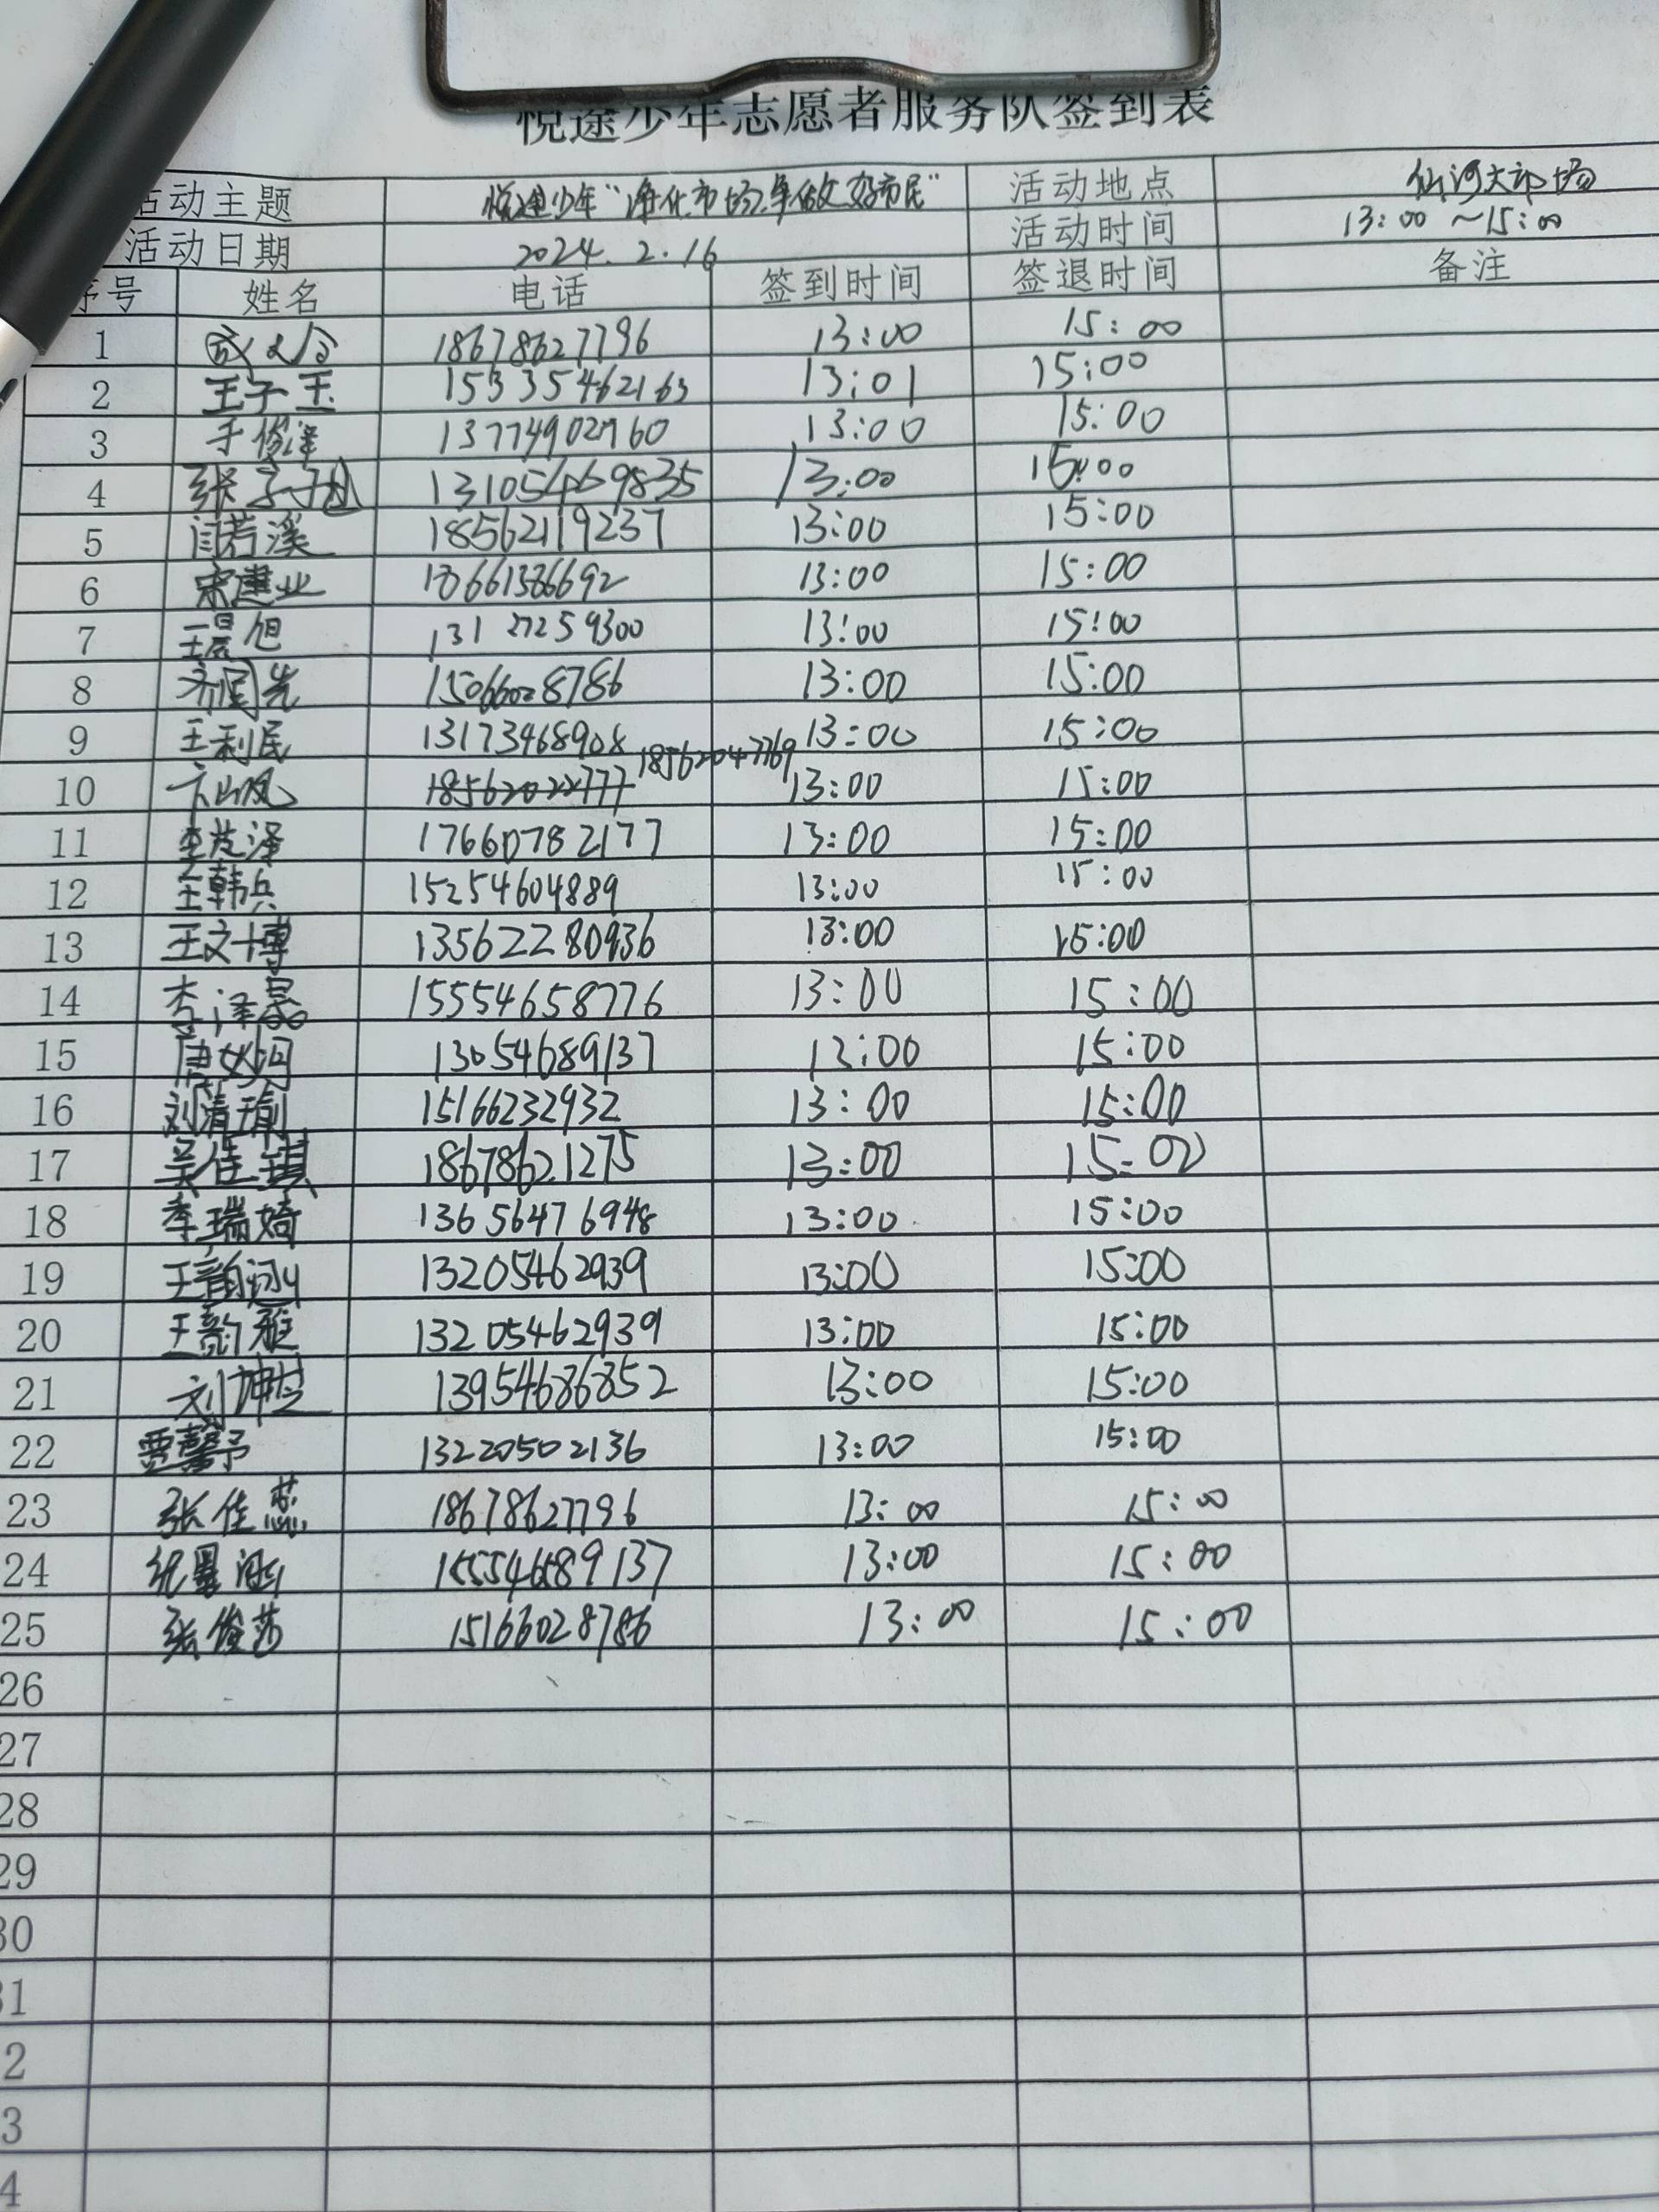 悦途少年志愿者服务队签到表
活动主题 悦途少年“净化市场,争做好市民” 活动地点 仙河大市场
活动日期 2024.2.16 活动时间 13:00～15:00
序号 姓名 电话 签到时间 签退时间 备注
1 18678627796 13:00 15:00
2 王子玉 15335462163 13:01 15:00
3 13774902760 13:00 15:00
4 13105469835 13:00 15:00
5 闫若溪 18562119237 13:00 15:00
6 宋建业 18661386692 13:00 15:00
7 王晨旭 13127259300 13:00 15:00
8 齐国先 15066028786 13:00 15:00
9 王利民 13173468908 13:00 15:00
10 卞山凤 18562022777 18562047769 13:00 15:00
11 17660782177 13:00 15:00
12 王韩兵 15254604889 13:00 15:00
13 王文博 13562280936 13:00 15:00
14 李泽 15554658776 13:00 15:00
15 唐妙 13054689137 13:00 15:00
16 刘清瑜 15166232932 13:00 15:00
17 吴佳琪 18678621275 13:00 15:00
18 李瑞婍 13656476948 13:00 15:00
19 王韵涵 13205462939 13:00 15:00
20 王韵雅 13205462939 13:00 15:00
21 刘坤 13954686852 13:00 15:00
22 贾馨予 13220502136 13:00 15:00
23 张佳蕊 18678627796 13:00 15:00
24 15554689137 13:00 15:00
25 张俊莎 15166028786 13:00 15:00
26
27
28
29
30
31
2
3
4